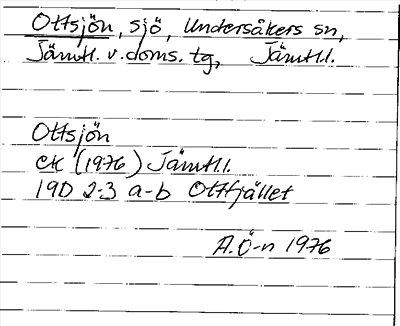 Ottsjön, sjö, Undersåkers sn,
Jämtl. v. doms. tg, Jämtl.l.
Ottsjön
EK (1976) Jämtl.l.
19D 2-3 a-b Ottfjället
A.Ö-n 1976